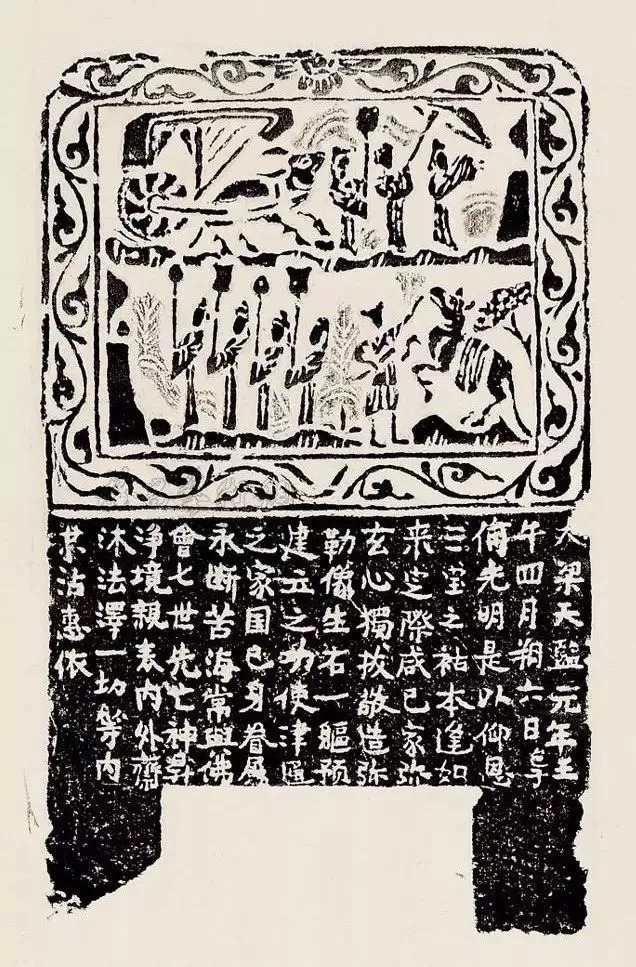 大梁天監元年壬
午四月朔六日
光明是以仰恩
三之祜本逢如
来之際咸已家弥
玄心獨拔敬造弥
勒像生石一軀预
建立之功使津通
之家国已身眷屬
永断苦海常與佛
會七世先亡神昇
淨境親表内外齊
沐法澤一切等内
其沾惠依